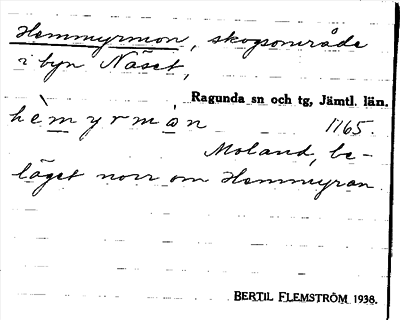 Hemmyrmon, skogsområde
i byn Näset,
Ragunda sn och tg, Jämtl. län.
hèmyrmòn 1165.
Moland, be-
läget norr om Hemmyran
BERTIL FLEMSTRÖM 1938.